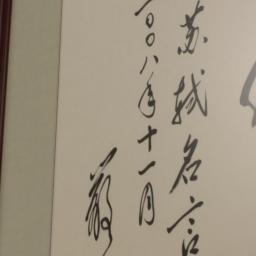 苏轼名言
二〇〇八年十一月